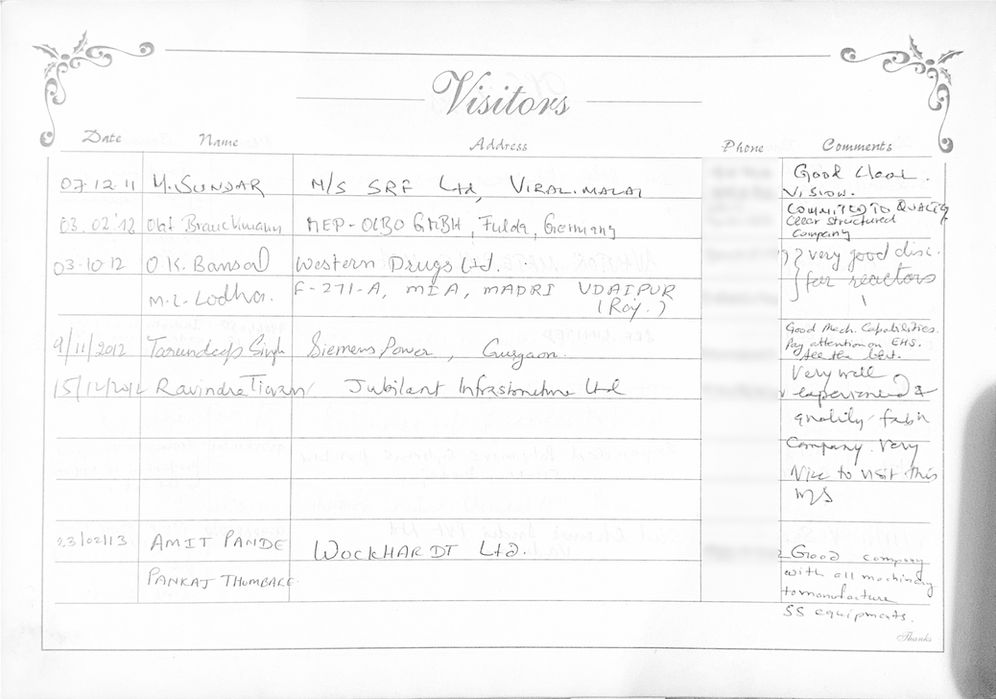 Visitors
Date Name Address Phone Comments
07.12.11 M. SUNDAR M/S SRF Ltd, VIRALIMALAI Good Clear
VISION.
03.02'12 Olaf Brauckmann MEP-OLBO GMBH, Fulda, Germany COMMITTED TO QUALITY
Clear structured
Company
03.10.12 O.K. Bansal Western Drugs Ltd. very good disc.
M.L. Lodha. F-271-A, MIA, MADRI UDAIPUR for reactors
(Raj.)
9/11/2012 Tarundeep Singh Siemens Power, Gurgaon. Good Mech. Capabilities.
Pay attention on EHS.
All the best.
15/12/2012 Ravindra Tiwari Jubilant Infrastructure Ltd Very well
experienced &
quality fabn
Company. Very
Nice to visit this
M/S
23/02/13 AMIT PANDE WOCKHARDT Ltd. Good company
PANKAJ THOMBARE. with all machinery
to manufacture
SS equipments.
Thanks